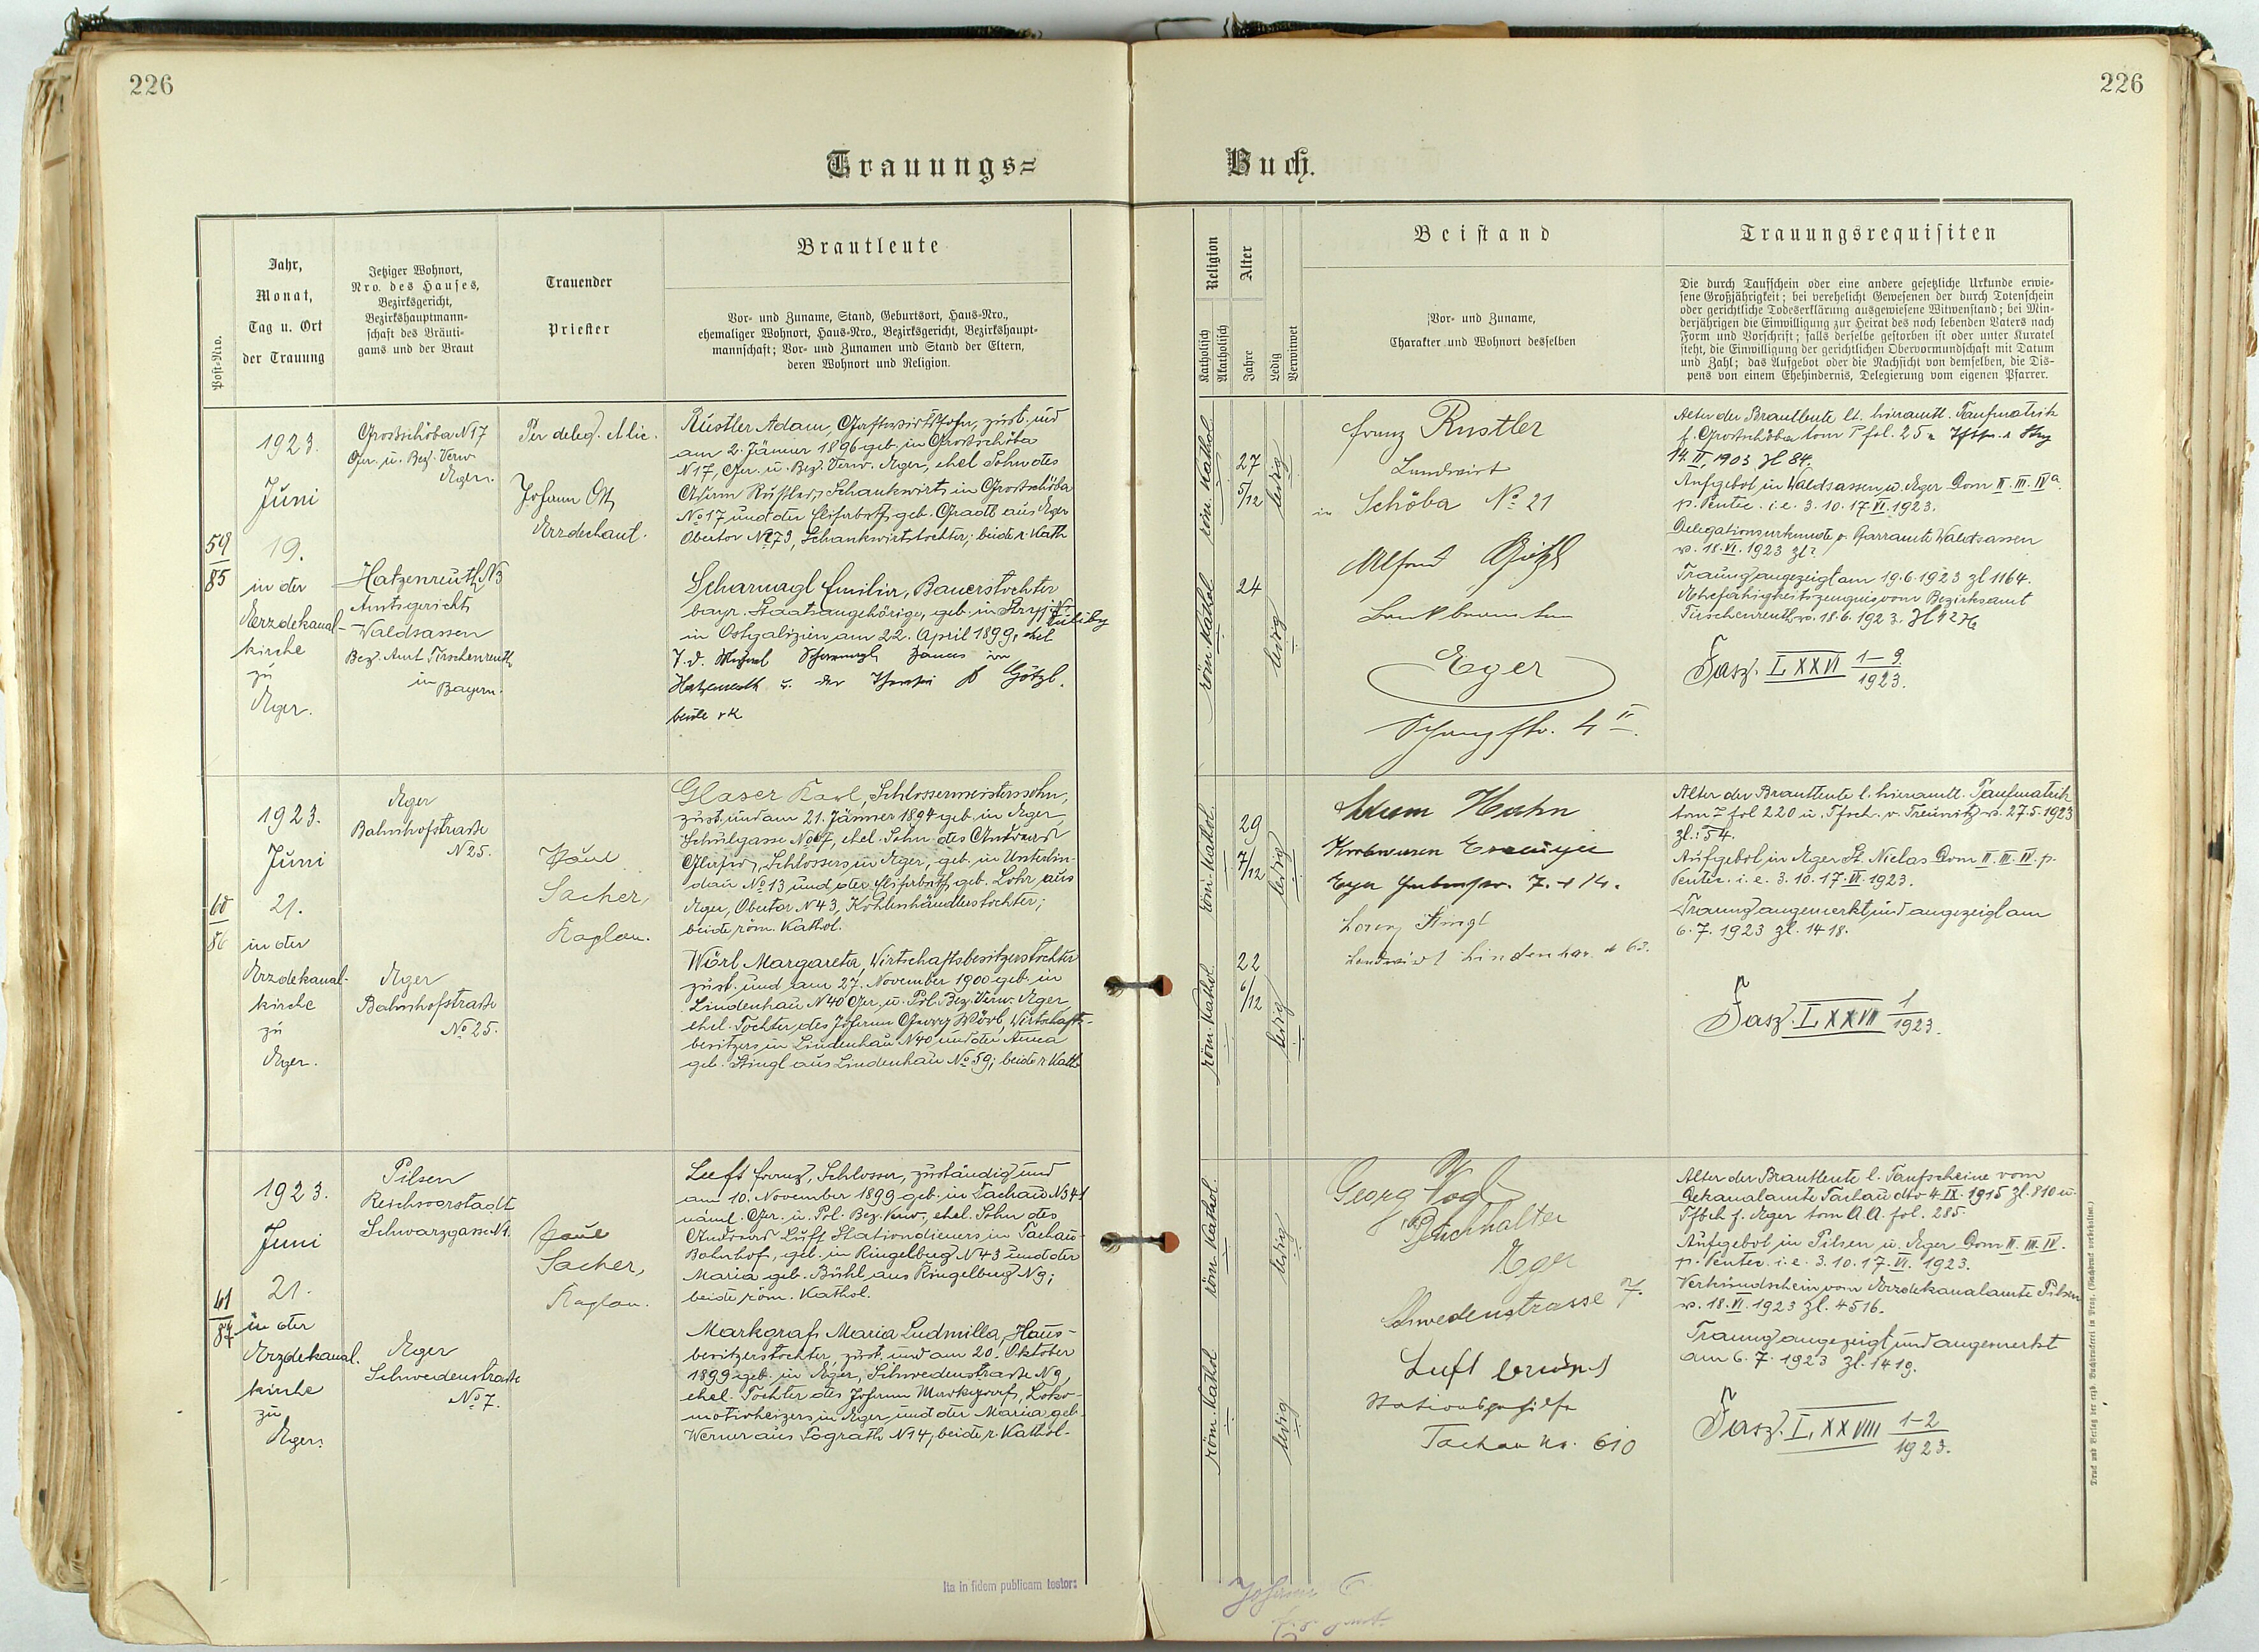 226
226
Trauungs=
Buch.
Post-Nro.
Jahr,
Monat,
Tag u. Ort
der Trauung
Jetziger Wohnort,
Nro. des Hauses,
Bezirksgericht,
Bezirkshauptmann-
schaft des Bräuti-
gams und der Braut
Trauender
Priester
Brautleute
Vor- und Zuname, Stand, Geburtsort, Haus-Nro.,
ehemaliger Wohnort, Haus-Nro., Bezirksgericht, Bezirkshaupt-
mannschaft; Vor- und Zunamen und Stand der Eltern,
deren Wohnort und Religion.
Religion
Katholisch
Akatholisch
Alter
Jahre
Ledig
Verwitwet
Beistand
Vor- und Zuname,
Charakter und Wohnort desselben
Trauungsrequisiten
Die durch Taufschein oder eine andere gesetzliche Urkunde erwie-
sene Großjährigkeit; bei verehelicht Gewesenen der durch Totenschein
oder gerichtliche Todeserklärung ausgewiesene Witwenstand; bei Min-
derjährigen die Einwilligung zur Heirat des noch lebenden Vaters nach
Form und Vorschrift; falls derselbe gestorben ist oder unter Kuratel
steht, die Einwilligung der gerichtlichen Obervormundschaft mit Datum
und Zahl; das Aufgebot oder die Nachsicht von demselben, die Dis-
pens von einem Ehehindernis, Delegierung vom eigenen Pfarrer.
59
85
1923.
Juni
19.
in der
Erzdekanal-
kirche
zu
Eger.
Grosschöba N17
Ger. u. Bez. Verw.
Eger.
Hatzenreuth N5
Amtsgericht
Waldsassen
Bez. Amt Tirschenreuth
in Bayern.
Per deleg.
Johann Ott
Erzdechant.
Rustler Adam, Gastwirtssohn, zust. und
am 2. Jänner 1896 geb. in Grosschöba
N17, Ger. u. Bez. Verw. Eger, ehel. Sohn des
Adam Rustler, Schankwirts in Grosschöba
No 17 und der Elisabeth, geb. Gradl aus Eger
Obertor N 73, Schankwirtstochter; beide r. Kath
Scharnagl Emilie, Bauerstochter
bayr. Staatsangehörige, geb. in Stryj
in Ostgalizien am 22. April 1899, ehel
T. d. Michael Scharnagl Bauers in
Hatzenreuth u. der geb Götzl.
beide rk
röm. Kathol.
27
5/12
ledig
röm. Kathol.
24
ledig
Franz Rustler
Landwirt
in Schöba No 21
Alfred Götzl
Bankbeamter
Eger
Schanzstr. 4 II.
Alter der Brautleute lt. hieramtl. Taufmatrik
f. Grosschöba tom P fol. 25 u.
14. II. 1903 Zl 84.
Aufgebot in Waldsassen u. Eger Dom II. III. IV a
p. Pentec. i.e. 3. 10. 17. VI. 1923.
Delegationsurkunde v. Pfarramte Waldsassen
v. 18. VI. 1923 Zl?
Trauung angezeigt am 19.6.1923 Zl 1164.
Ehefähigkeitszeugnis vom Bezirksamt
Tirschenreuth v. 18.6.1923.
Fasz. LXXVI 1-9
1923.
60
86
1923.
Juni
21.
in der
Erzdekanal-
kirche
zu
Eger.
Eger
Bahnhofstraße
N 25.
Eger
Bahnhofstraße
No 25.
Paul
Sacher,
Kaplan.
Glaser Karl, Schlossermeisterssohn,
zust. und am 21. Jänner 1894 geb. in Eger,
Schulgasse No 7, ehel. Sohn des Andreas
Glaser, Schlossers in Eger, geb. in Unterlin-
dau No 13 und der Elisabeth, geb. Lohr aus
Eger, Obertor N 43, Kohlenhändlerstochter;
beide röm. Kathol.
Wörl Margareta, Wirtschaftsbesitzerstochter
zust. und am 27. November 1900 geb. in
Lindenhau N 40 Ger. u. Pol. Bez. Verw. Eger,
ehel. Tochter des Johann Georg Wörl, Wirtschafts-
besitzers in Lindenhau N40 und der Anna
geb. Stingl aus Lindenhau No 59; beide r. Kath
röm. Kathol.
29
7/12
ledig
röm. Kathol.
22
6/12
ledig
Adam Hahn
Lorenz Stingl
Landwirt Lindenhau N 63.
Alter der Brautleute l. hieramtl. Taufmatrik
fol 220 u. Tfsch. v. Treunitz v. 27.5.1923
Zl: 54.
Aufgebot in Eger St. Niclas Dom II. III. IV. p.
Pentec. i.e. 3. 10. 17. VI. 1923.
Trauung angemerkt und angezeigt am
6. 7. 1923 Zl. 1418.
Fasz. LXXVII 1
1923.
61
87
1923.
Juni
21.
in der
Erzdekanal.
kirche
zu
Eger.
Pilsen
Reichsvorstadt
Schwarzgasse N1.
Eger
Schwedenstraße
No 7.
Paul
Sacher,
Kaplan.
Luft Franz, Schlosser, zuständig und
am 10. November 1899 geb. in Tachau N341
näml. Ger. u. Pol. Bez. Verw., ehel. Sohn des
Andreas Luft Stationdieners in Tachau-
Bahnhof, geb. in Ringelberg N 43 und der
Maria geb. Bühl aus Ringelberg N9;
beide röm. Kathol.
Markgraf Maria Ludmilla, Haus-
besitzerstochter, zust. und am 20. Oktober
1899 geb. in Eger, Schwedenstraße N9,
ehel. Tochter des Johann Markgraf, Loko-
motivheizers in Eger und der Maria geb.
Werner aus Pograth N 14, beide r. Kathol.
röm. Kathol.
ledig
röm. Kathol
ledig
Georg Vogl
Buchhalter
Eger
Schwedenstrasse 7.
Luft
Stationsgehilfe
Tachau No. 610
Alter der Brautleute l. Taufscheine vom
Dekanalamte Tachau dto 4. IX. 1915 Zl. 810 u.
Tfbch f. Eger tom A.A. fol. 285.
Aufgebot in Pilsen u. Eger Dom II. III. IV.
p. Pentec. i.e. 3. 10. 17. VI. 1923.
Verkündschein vom Erzdekanalamte Pilsen
v. 18. VI. 1923 Zl. 4516.
Trauung angezeigt und angemerkt
am 6. 7. 1923 Zl. 1419.
Fasz. LXXVIII 1-2
1923.
Ita in fidem publicam testor:
Johann
Druck und Verlag der erzb. Buchdruckerei in Prag. (Nachdruck vorbehalten.)